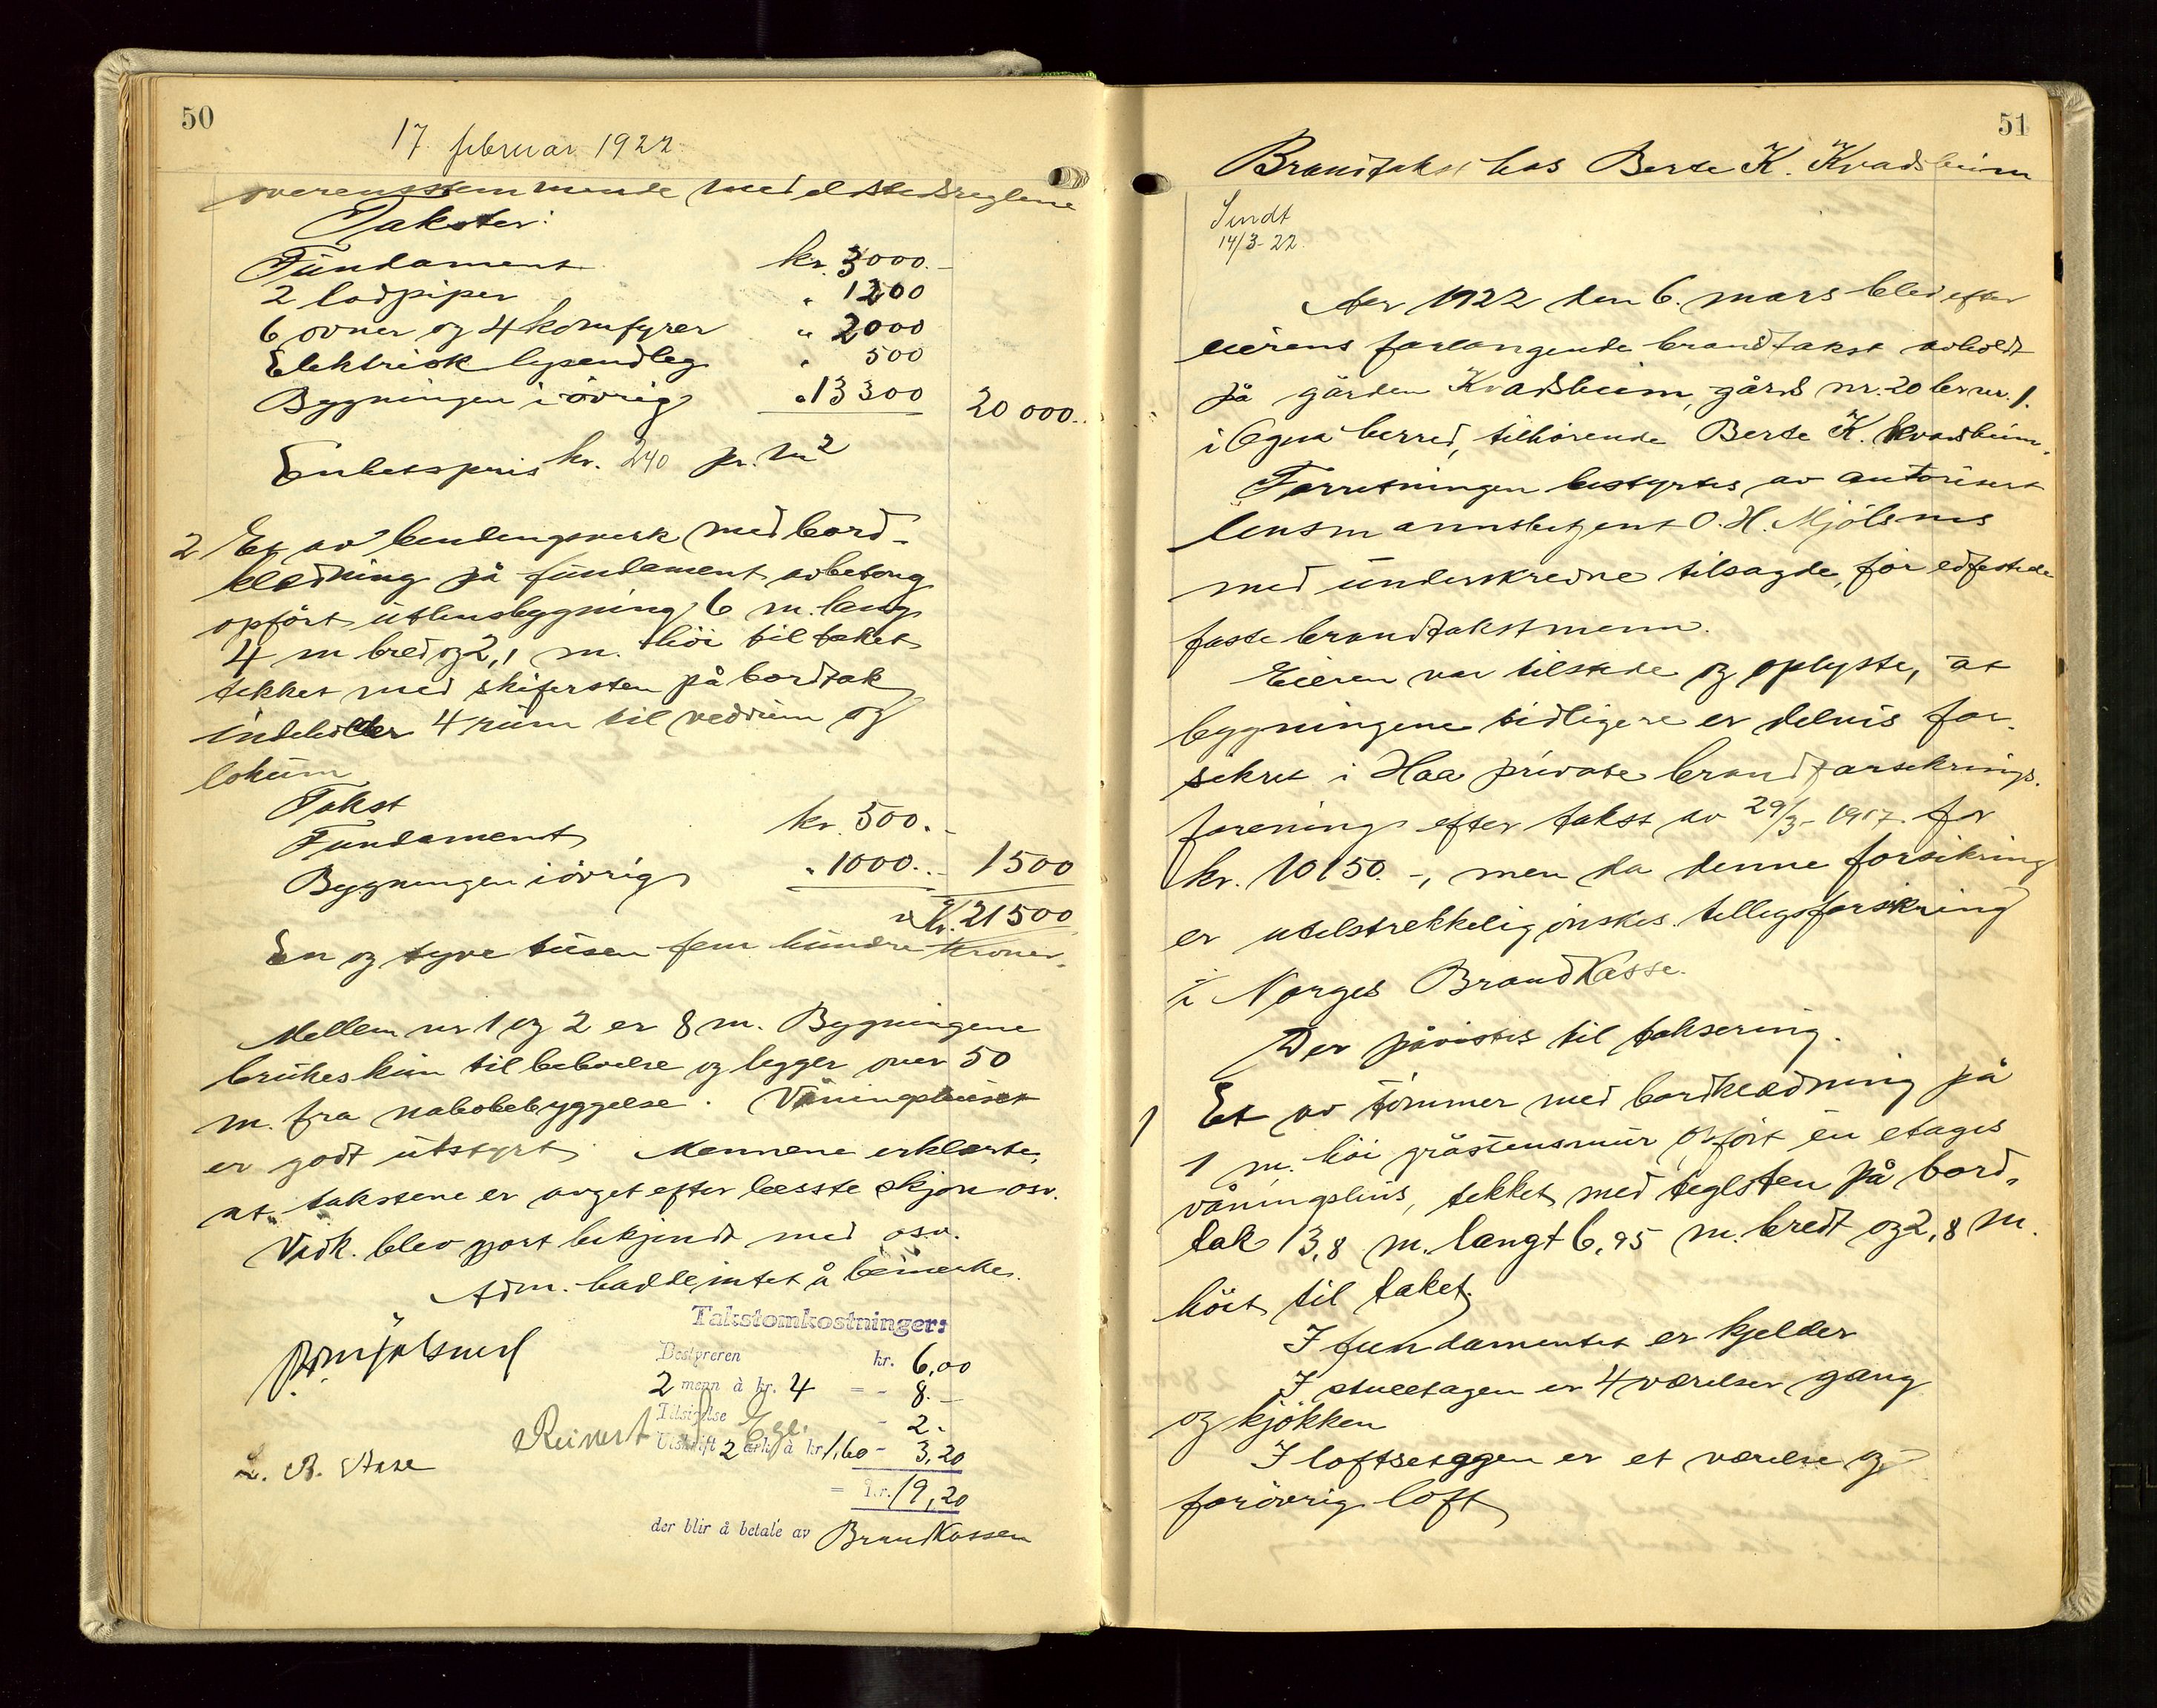 50
17. februar 1922
overensstemmende med elstedsreglene
Takster:
Fundament kr. 3000.-
2 lodpiper " 1200
6 ovner og 4 komfyrer " 2000
Elektrisk lysendleg " 500
Bygningen i övrig " 13300 20 000.-
Enhetspris kr. 240 pr. m2
2 Et av bendingsverk med bord-
klædning på fundament av betong
opfört uthusbygning 6 m. lang
4 m bred og 2,1 m. höi til taket
tekket med skifersten på bordtak
indeholder 4 rum til vedrum og
lokum
Takst
Fundament kr. 500.-
Bygningen i övrig " 1000.- 1500
kr. 21500
En og tyve tusen fem hundre kroner.
Mellem nr 1 og 2 er 8 m. Bygningene
brukes kun til beboelse og legger over 50
m. fra nabobebyggelse. Våningshuset
er godt utstyrt. Mennene erklærte,
at takstene er avget efter beste skjøn osv.
Vedk. blev gjort bekjendt med osv.
Adm. hadde intet å bemerke.
Takstomkostninger:
Bestyreren kr. 6,00
2 menn à kr. 4 = - 8.-
Tilsigelse - 2.-
Utskrift 2 ark à kr 1,60 - 3,20
= Kr. 19,20
der blir å betale av Brandkassen
Reinert
L. B. Aase
51
Brandtakst hos Berte K. Kvadsheim
Sendt
14/3-22.
Aar 1922 den 6. mars blev efter
eierens forlangende brandtakst avholdt
på gården Kvadsheim, gårds nr. 20 br nr. 1.
i Ogna herred, tilhörende Berte K. Kvadsheim.
Forretningen bestyrtes av autorisert
lensmannsbetjent O. H. Mjölsnes
med underskrevne tilsagde, för edfestede
faste brandtakstmenn.
Eieren var tilstede og oplyste, at
bygningene tidligere er delvis for-
sikret i Haa private brandforsikrings-
forening efter takst av 29/3-1917 for
kr. 10150.-, men da denne forsikring
er utilstrekkelig önskes tillegsforsikring
i Norges Brandkasse.
Der påvistes til taksering.
1 Et av tömmer med bordklædning på
1 m. höi gråstensmur opfört en etages
våningshus, tekket med teglsten på bord-
tak 13,8 m. langt 6,95 m. bredt og 2,8 m.
höit til taket.
I fundamentet er kjelder
I stueetagen er 4 værelser gang
og kjökken
I loftsetagen er et værelse og
forövrig loft